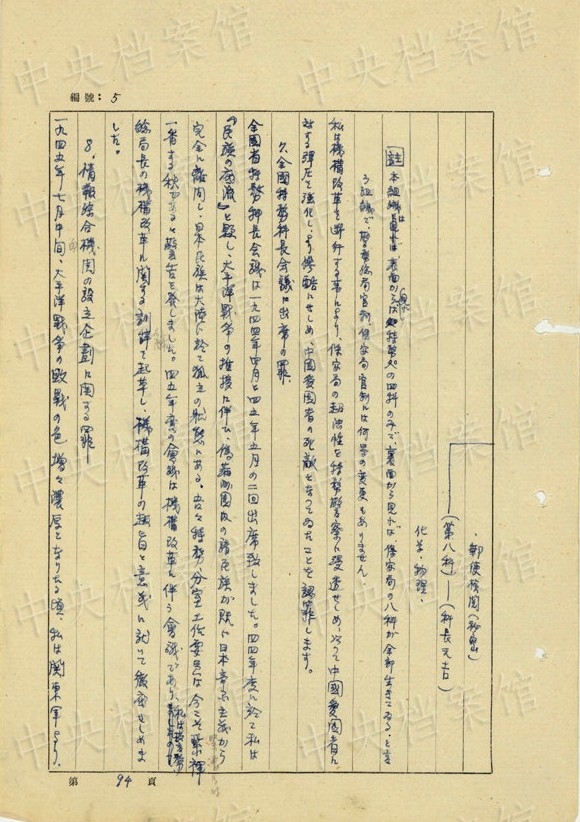 編號：5
郵便検閲（秘密）
（第八科）—（科長 元吉）
化学・物理・
註 本組織は表面からは特務処の四科のみで、裏面から見れば、保安局の八科が全部生きてゐる、と言
ふ組織で、警務総局官制、保安局官制には何等の変更もありません。
私は機構改革を断行する事により、保安局の超法性を特務警察に浸透せしめ、以つて中國愛國者に
対する弾圧を強化し、より惨酷にせしめ、中國愛國者の死敵となつてゐたことを認罪します。
7、全國特務科長会議に出席の罪、
全國省特務科長会議は一九四四年四月と四五年五月の二回出席致しました。四四年度に於て私は
『民族の底流』と題し、大平洋戦争の推移に伴ひ、偽満州國内の諸民族が既に日本帝國主義から
完全に離間し、日本民族は大陸に於て孤立の状態にある。吾々特務分室工作委員は今こそ緊褌
一番する秋であると警告を発しました。四五年度の會議は機構改革に伴う會議であり、私は警務
総局長の機構改革に関する訓辞を起草し、機構改革の趣旨と意義に就いて徹底せしめま
した。
8、情報綜合機関の設立企劃に関する罪—
一九四五年七月中旬、大平洋戦争の敗戦の色増々濃厚となりたる頃、私は関東軍より、
第 94 頁
中央档案馆